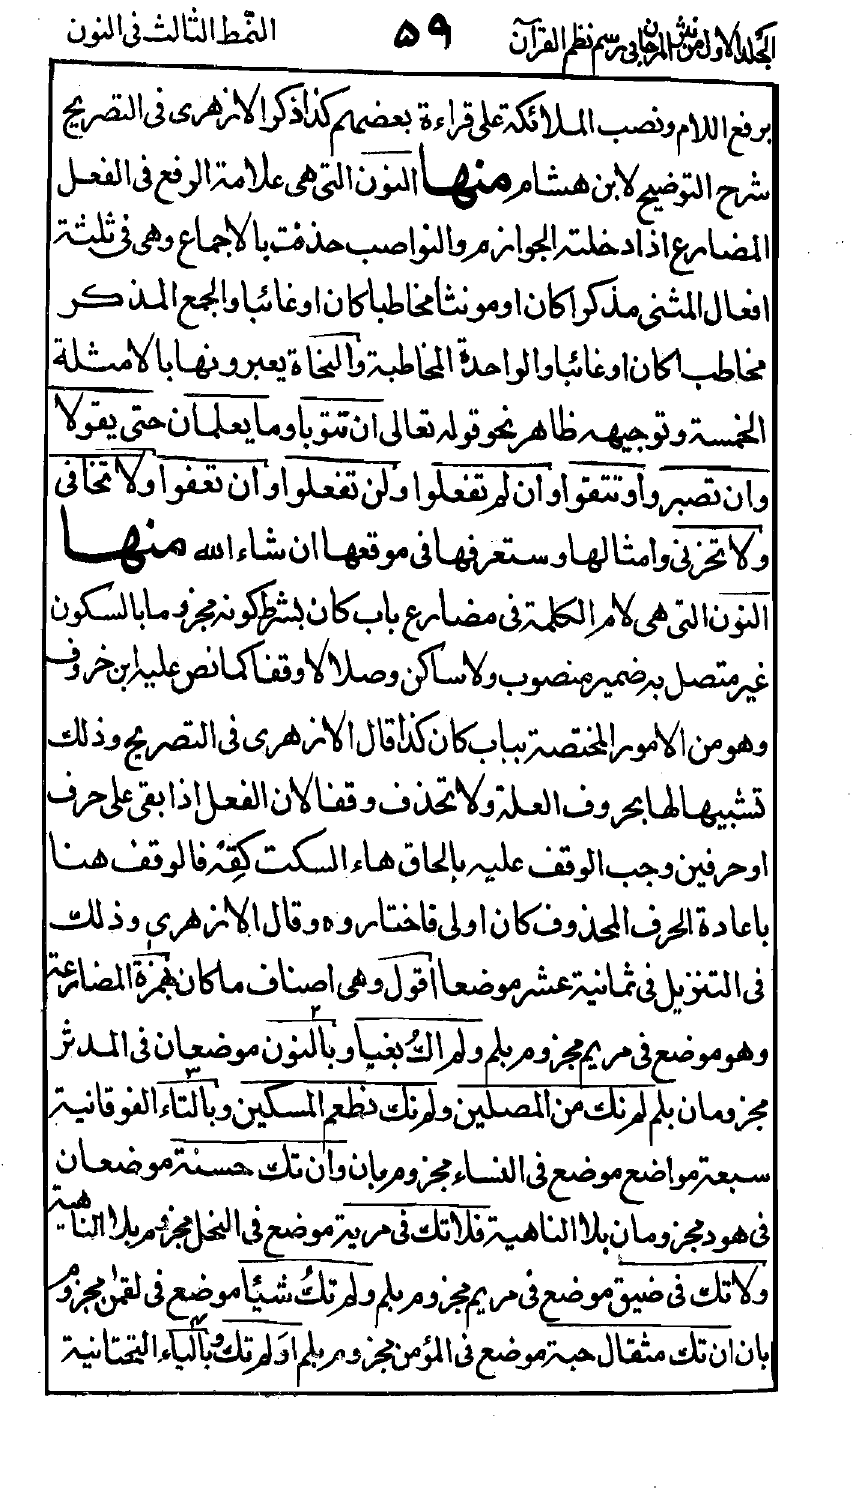 الجلد الاول من نثر المرجان في رسم نظم القرآن ٥٩ النمط الثالث في النون
برفع اللام ونصب الملائكة على قراءة بعضهم كذا ذكر الازهرى فى التصريح
شرح التوضيح لابن هشام منها النون التى هى علامة الرفع فى الفعل
المضارع اذا دخلته الجوازم والنواصب حذفت بالاجماع وهى فى ثلثة
افعال المثنى مذكرا كان او مونثا مخاطبا كان او غائبا والجمع المذكر
مخاطبا كان او غائبا والواحدة المخاطبة والنحاة يعبرونها بالامثلة
الخمسة وتوجيهه ظاهر نحو قوله تعالى ان تتوبا وما يعلمان حتى يقولا
وان تصبروا وتتقوا وان لم تفعلوا ولن تفعلوا وان تعفوا ولا تخافى
ولا تحزنى وامثالها وستعرفها فى موقعها ان شاء الله منها
النون التى هى لام الكلمة فى مضارع باب كان بشرط كونه مجزوما بالسكون
غير متصل به ضمير منصوب ولا ساكن وصلا لا وقفا كما نص عليه ابن خروف
وهو من الامور المختصة بباب كان كذا قال الازهرى فى التصريح وذلك
تشبيها لها بحروف العلة ولا تحذف وقفا لان الفعل اذا بقى على حرف
او حرفين وجب الوقف عليه بالحاق هاء السكت كقه فالوقف هنا
باعادة الحرف المحذوف كان اولى فاختاروه وقال الازهرى وذلك
فى التنزيل فى ثمانية عشر موضعا اقول وهى اصناف ما كان بهمزة المضارعة ١
وهو موضع فى مريم مجزوم بلم ولم اك بغيا وبالنون ٢ موضعان فى المدثر
مجزومان بلم لم نك من المصلين ولم نك نطعم المسكين وبالتاء ٣ الفوقانية
سبعة مواضع موضع فى النساء مجزوم بان وان تك حسنة موضعان
فى هود مجزومان بلا الناهية فلا تك فى مرية موضع فى النحل مجزوم بلا الناهية
ولا تك فى ضيق موضع فى مريم مجزوم بلم ولم تك شيئا موضع فى لقمن مجزوم
بان ان تك مثقال حبة موضع فى المؤمن مجزوم بلم اولم تك وبالياء ٤ التحتانية